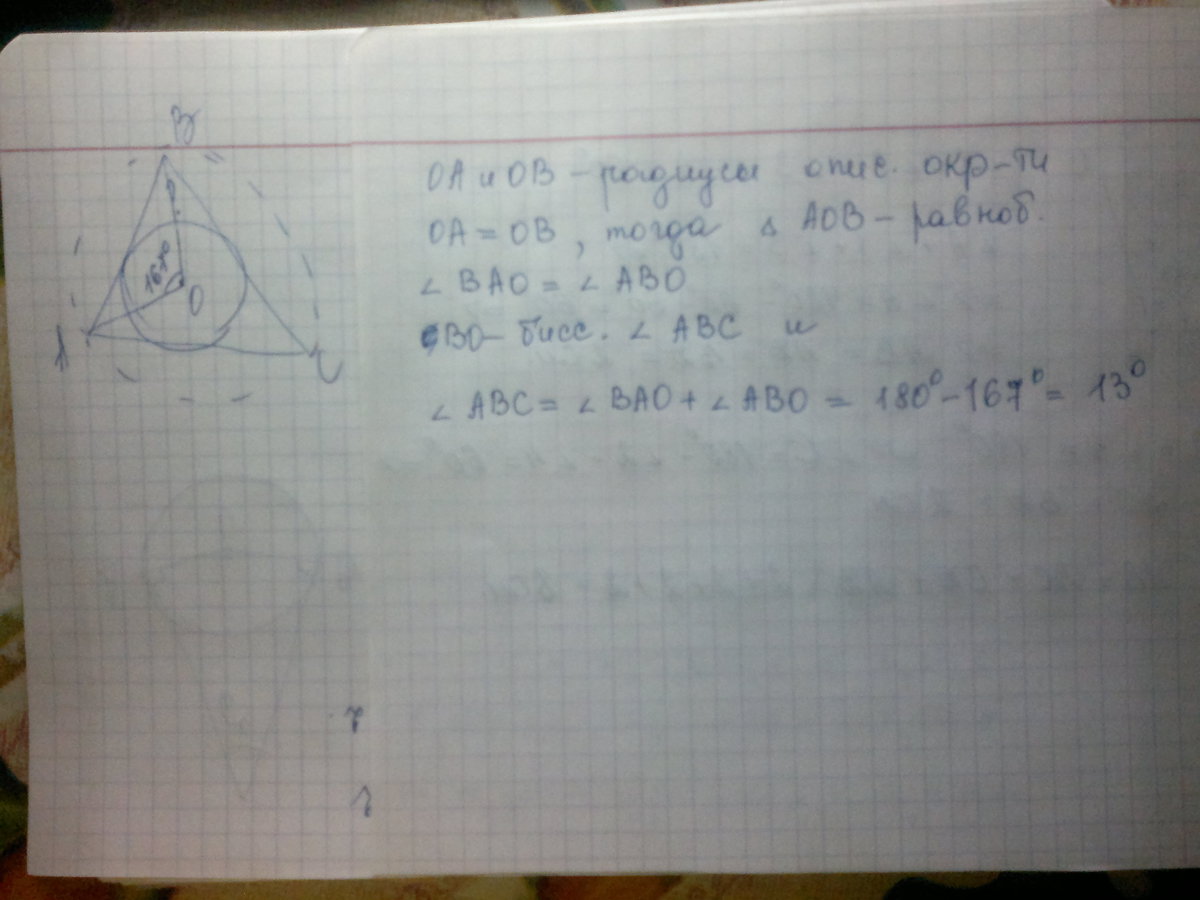 B
167°
O
A
C
OA и OB – радиусы опис. окр-ти
OA = OB, тогда △ AOB – равноб.
∠ BAO = ∠ ABO
BO – бисс. ∠ ABC и
∠ ABC = ∠ BAO + ∠ ABO = 180° - 167° = 13°